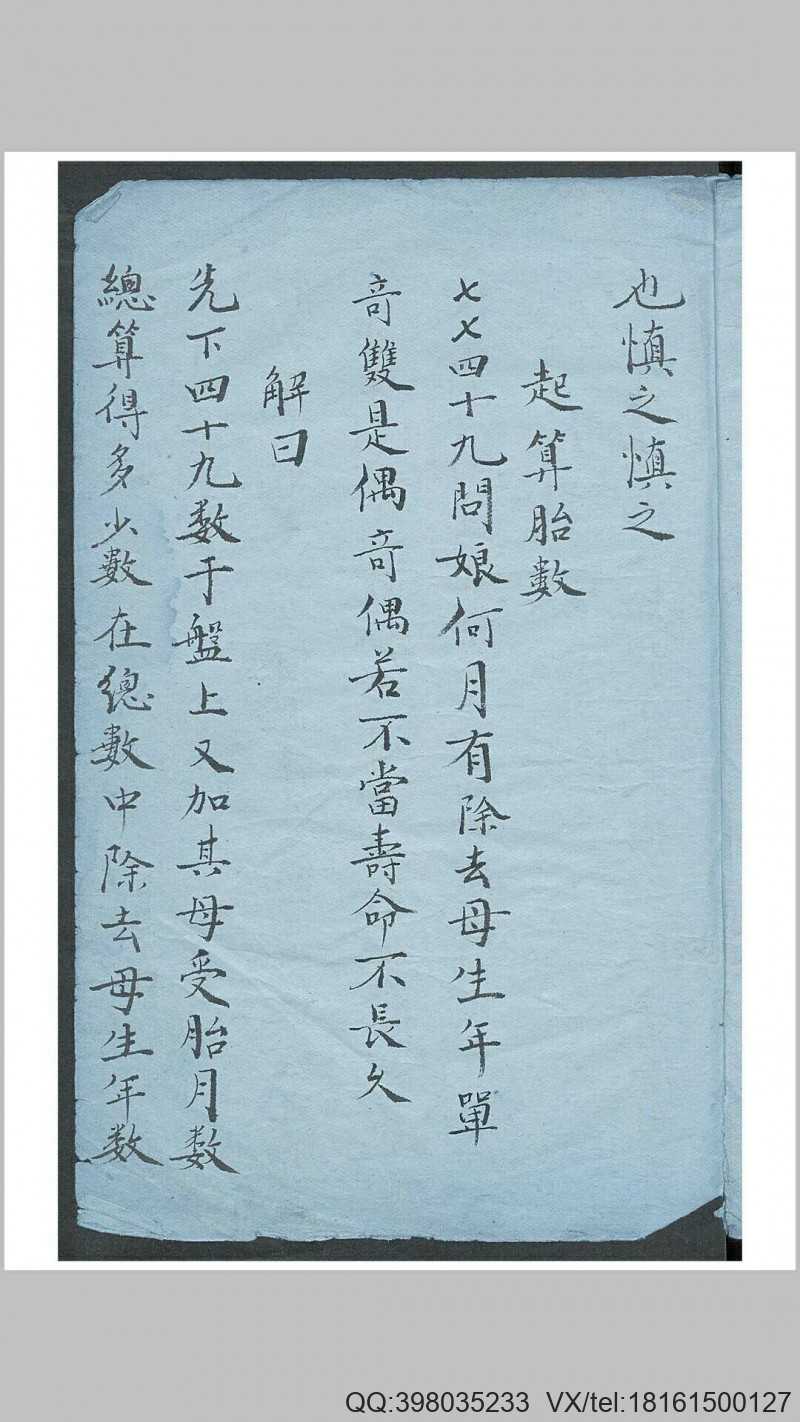 也慎之慎之
起算胎數
七七四十九問娘何月有除去母生年單
奇雙是偶奇偶若不當壽命不長久
解曰
先下四十九数于盤上又加其母受胎月数
總算得多少數在總數中除去母生年数
QQ:398035233 VX/tel:18161500127